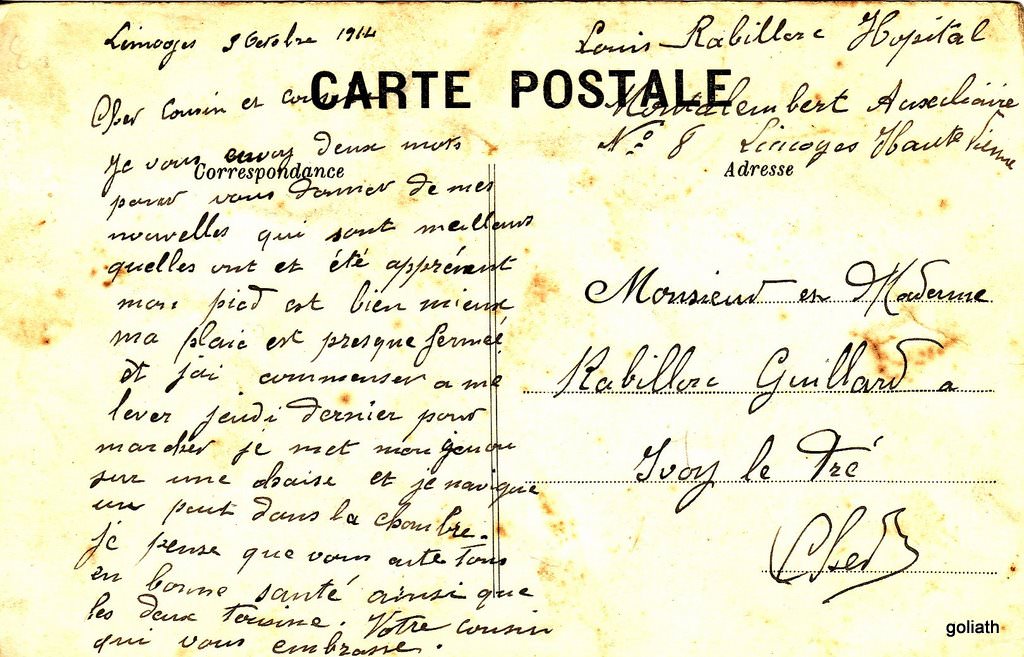 Limoges 9 Octobre 1914
Cher Cousin et cousine
Je vous envoy deux mots
pour vous donner de mes
nouvelles qui sont meilleurs
quelles ont et été apprésent
mon pied est bien mieux
ma plaie est presque fermeé
et jai commenser a me
lever jeudi dernier pour
marcher je met mon genou
sur une chaise et je navigue
un peut dans la chambre.
je pense que vous aite tous
en bonne santé ainsi que
les deux Votre cousin
qui vous embrasse.
CARTE POSTALE
Correspondance
Louis Rabillorc Hopital
Montalembert Auxciliaire
No 8 Limoges Haute Vienne
Adresse
Monsieur et Madame
Rabillorc Guillard a
Ivoy le Pré
Cher
goliath